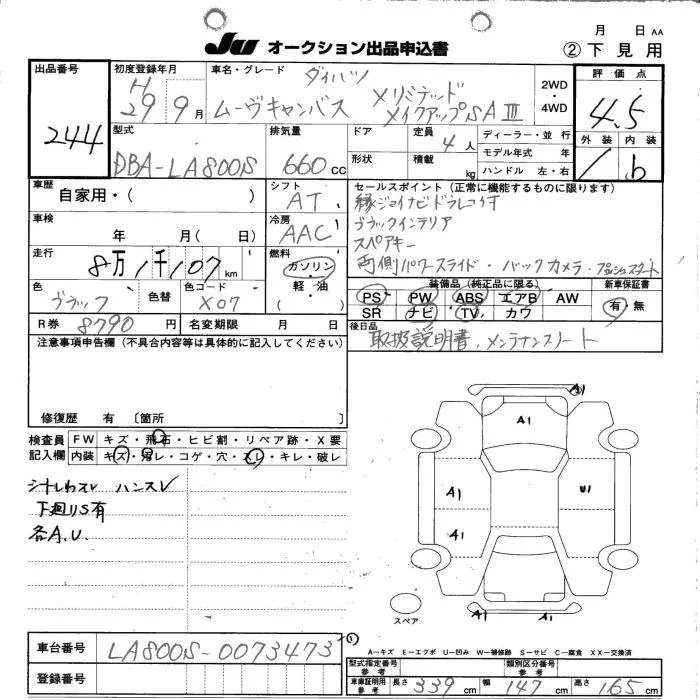 Ju オークション出品申込書
月 日 AA
② 下見用
出品番号
244
初度登録年月
H29 9 月
車名・グレード
ダイハツ
ムーヴキャンバス Xリミテッド
メイクアップSAⅢ
2WD
・
4WD
評価点
4.5
外装 内装
1 b
型式
DBA-LA800S
排気量
660 cc
ドア
形状
定員 4 人
積載 kg
ディーラー・並行
モデル年式 年
ハンドル 左・右
車歴
自家用・( )
シフト
AT
セールスポイント (正常に機能するものに限ります)
ブラックインテリア
スペアキー
両側パワースライド・バックカメラ・プッシュスタート
車検
年 月( 日)
冷房
AAC
走行
8万1千107 km
燃料
ガソリン
・
軽・油
( )
色
ブラック
色替
色コード
X07
装備品 (純正品に限る)
PS PW ABS エアB AW
SR ナビ TV カワ
新車保証書
有・無
R券 8790 円
名変期限 月 日
後日品
取扱説明書、メンテナンスノート
注意事項申告欄 (不具合内容等は具体的に記入してください)
修復歴 有 〔箇所 〕
検査員
記入欄
FW キズ・飛石・ヒビ割・リペア跡・X要
内装 キズ・汚レ・コゲ・穴・スレ・キレ・破レ
ハンスレ
下廻りS有
各A.U.
A1
A1
A1
U1
A1
A1
スペア
車台番号 LA800S-0073473
登録番号
A―キズ E―エクボ U―凹み W―補修跡 S―サビ C―腐食 XX―交換済
型式指定番号
参考
類別区分番号
参考
車庫証明用
参考
長さ 339 cm 幅 147 cm 高さ 165 cm